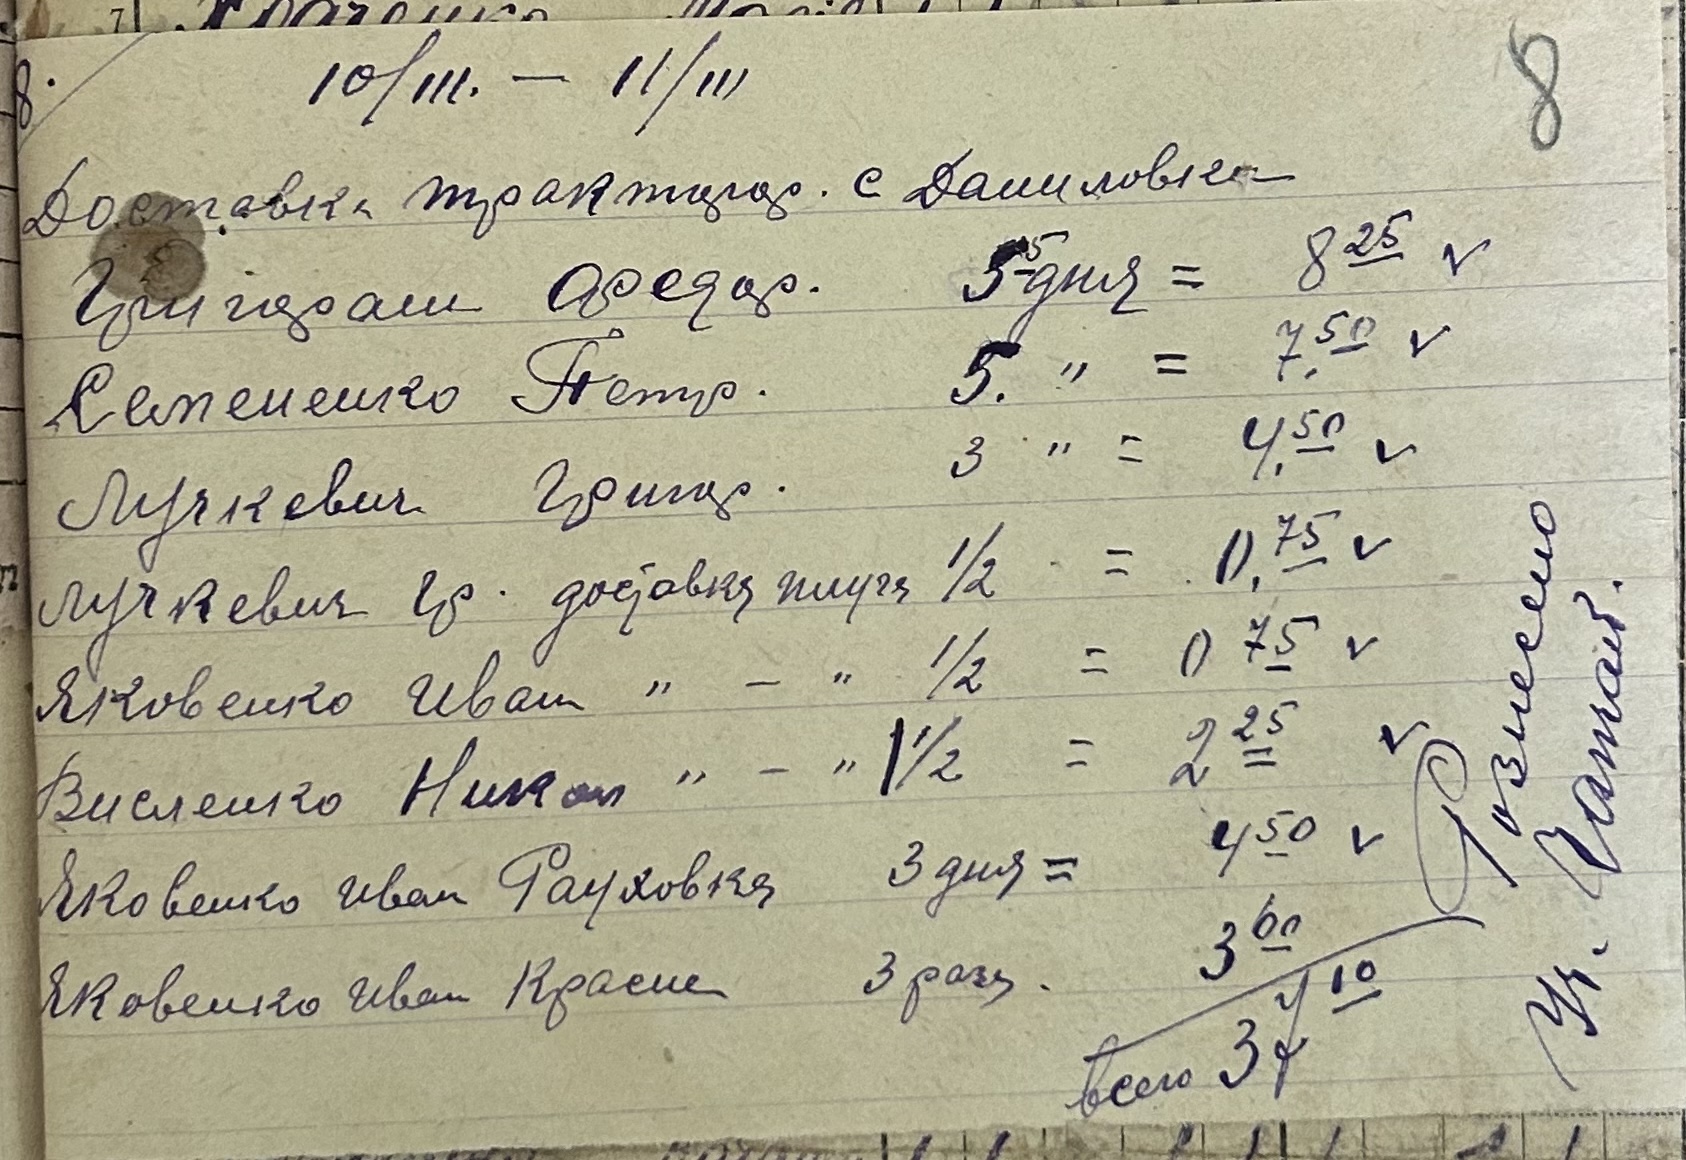 8.
10/III. — 11/III
8
Доставка трактор. с Даниловки
Григораш Федор. 5,5 дня = 8 25 v
Семененко Петр. 5. " = 7,50 v
Лучкевич Григор. 3 " = 4,50 v
Лучкевич Гр. доставка плуга 1/2 = 0,75 v
Яковенко Иван " — " 1/2 = 0 75 v
Висленко Никол " — " 1 1/2 = 2 25 v
Яковенко Иван Рауховка 3 дня = 4 50 v
Яковенко Иван Красне 3 раза. 3 00
всего 10
Рознесено